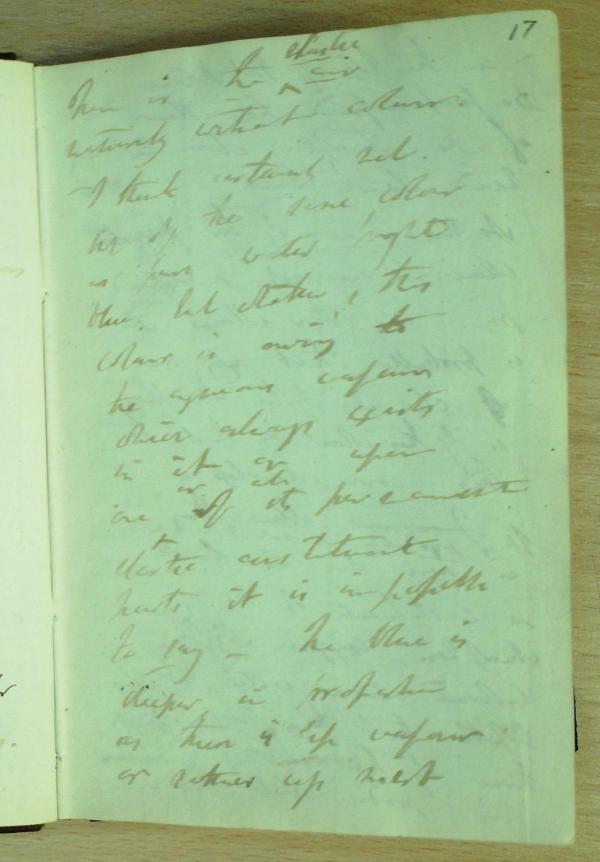 17
elastic
There is the ^ air
naturally without colour.
I think certainly not.
is of the same colour
as pure water bright
blue. but whether, this
colour is owing to
the aqueous vapour
which always exists
in it or upon
or its
one of its permanent
elastic constituent
parts it is impossible
to say – the blue is
deeper in proportion
as there is less vapour
or rather less mist